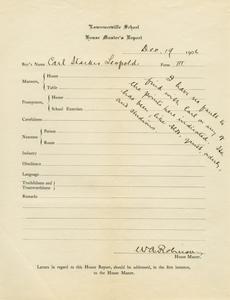 Lawrenceville School
House Master's Report
Dec. 19 1904
Boy's Name Carl Starker Leopold Form III
Manners, House
Table
Promptness, House
School Exercises
Carefulness
Neatness Person
Room
Industry
Obedience
Language
Truthfulness and Trustworthiness
Remarks
I have no fault to
find with Carl on any of
the points here indicated. He
has been, like
and studious.
W.A. Robinson
House Master.
Letters in regard to this House Report, should be addressed, in the first instance,
to the House Master.